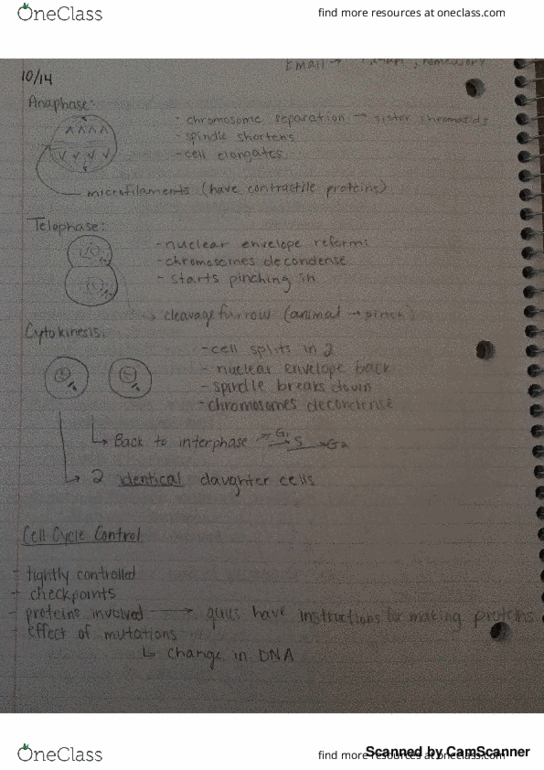 OneClass
find more resources at oneclass.com
EMAIL → homework
10/14
Anaphase:
- chromosome separation → sister chromatids
- spindle shortens
- cell elongates
microfilaments (have contractile proteins)
Telophase:
- nuclear envelope reforms
- chromosomes decondense
- starts pinching in
→ cleavage furrow (animal → pinch)
Cytokinesis:
- cell splits in 2
- nuclear envelope back
- spindle breaks down
- chromosomes decondense
↳ Back to interphase → G1 → S → G2
↳ 2 identical daughter cells
Cell Cycle Control
- tightly controlled
- checkpoints
- proteins involved → have instructions for making proteins
- effect of mutations
↳ change in DNA
OneClass
find more resources at oneclass.com
Scanned by CamScanner